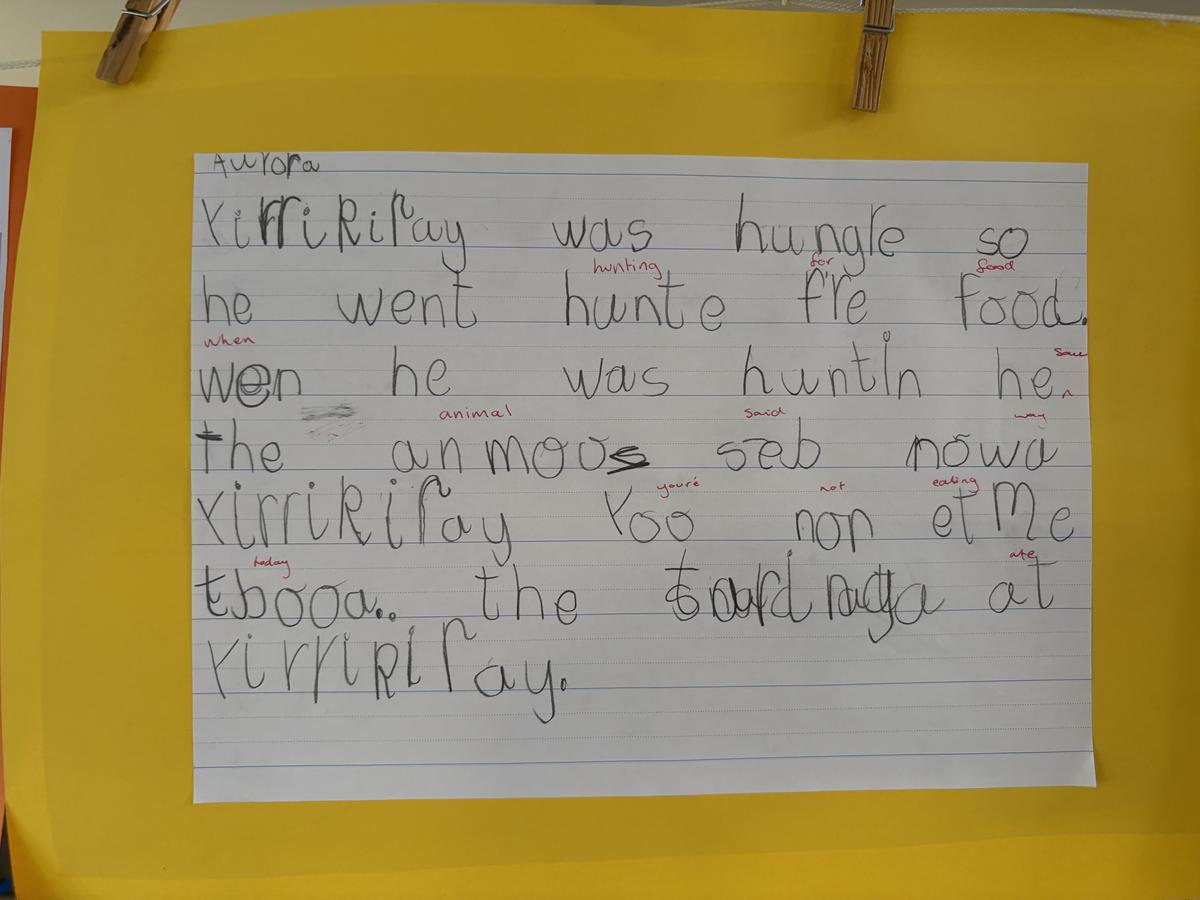 Aurora
Yirrikipay was hungle so
hunting for food
he went hunte fre food.
when saw
wen he was huntin he ^
animal said way
the anmoos seb nowa
you're not eating
Yirrikipay Yoo non et Me
today ate
tbooa.. the at
Yirrikipay.